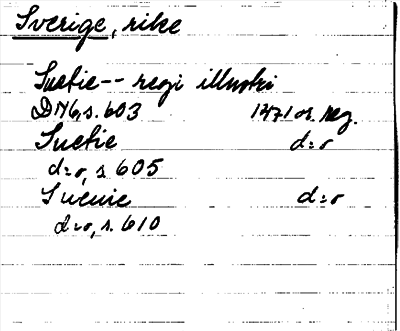 Sverige, rike
Suetie -- regi illustri
DN6, s. 603 1471 or. reg.
Suetie d:o
d:o, s. 605
Suenie d:o
d:o, s. 610